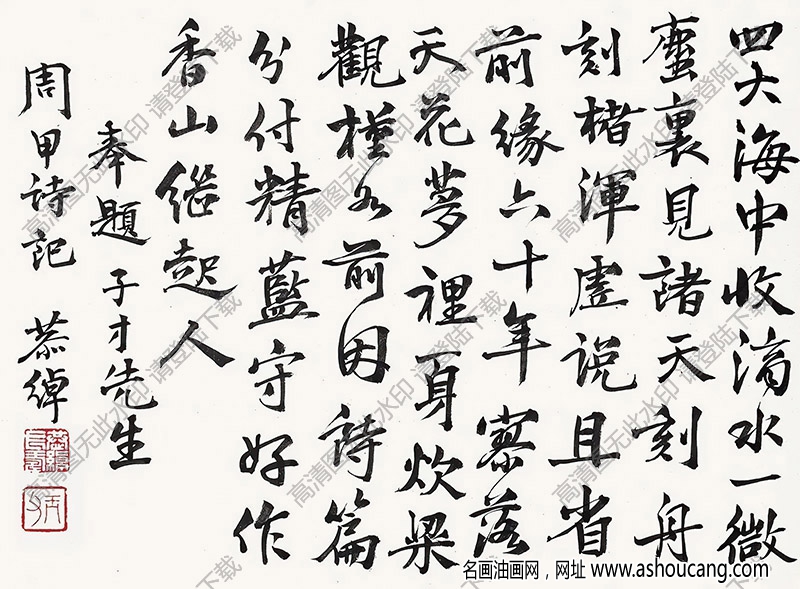 四大海中收滴水一微
塵裏見諸天刻舟
刻楮渾虛说且省
前緣六十年寥落
天花夢裡身炊粱
觀槿前因詩篇
分付精藍守好作
香山繼起人
奉題子才先生
周甲詩記 恭綽
高清图无此水印 请登陆下载
名画油画网，网址 www.ashoucang.com